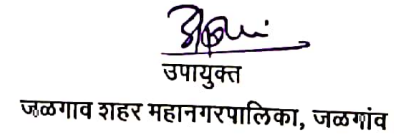 उपायुक्त
जळगाव शहर महानगरपालिका, जळगांव